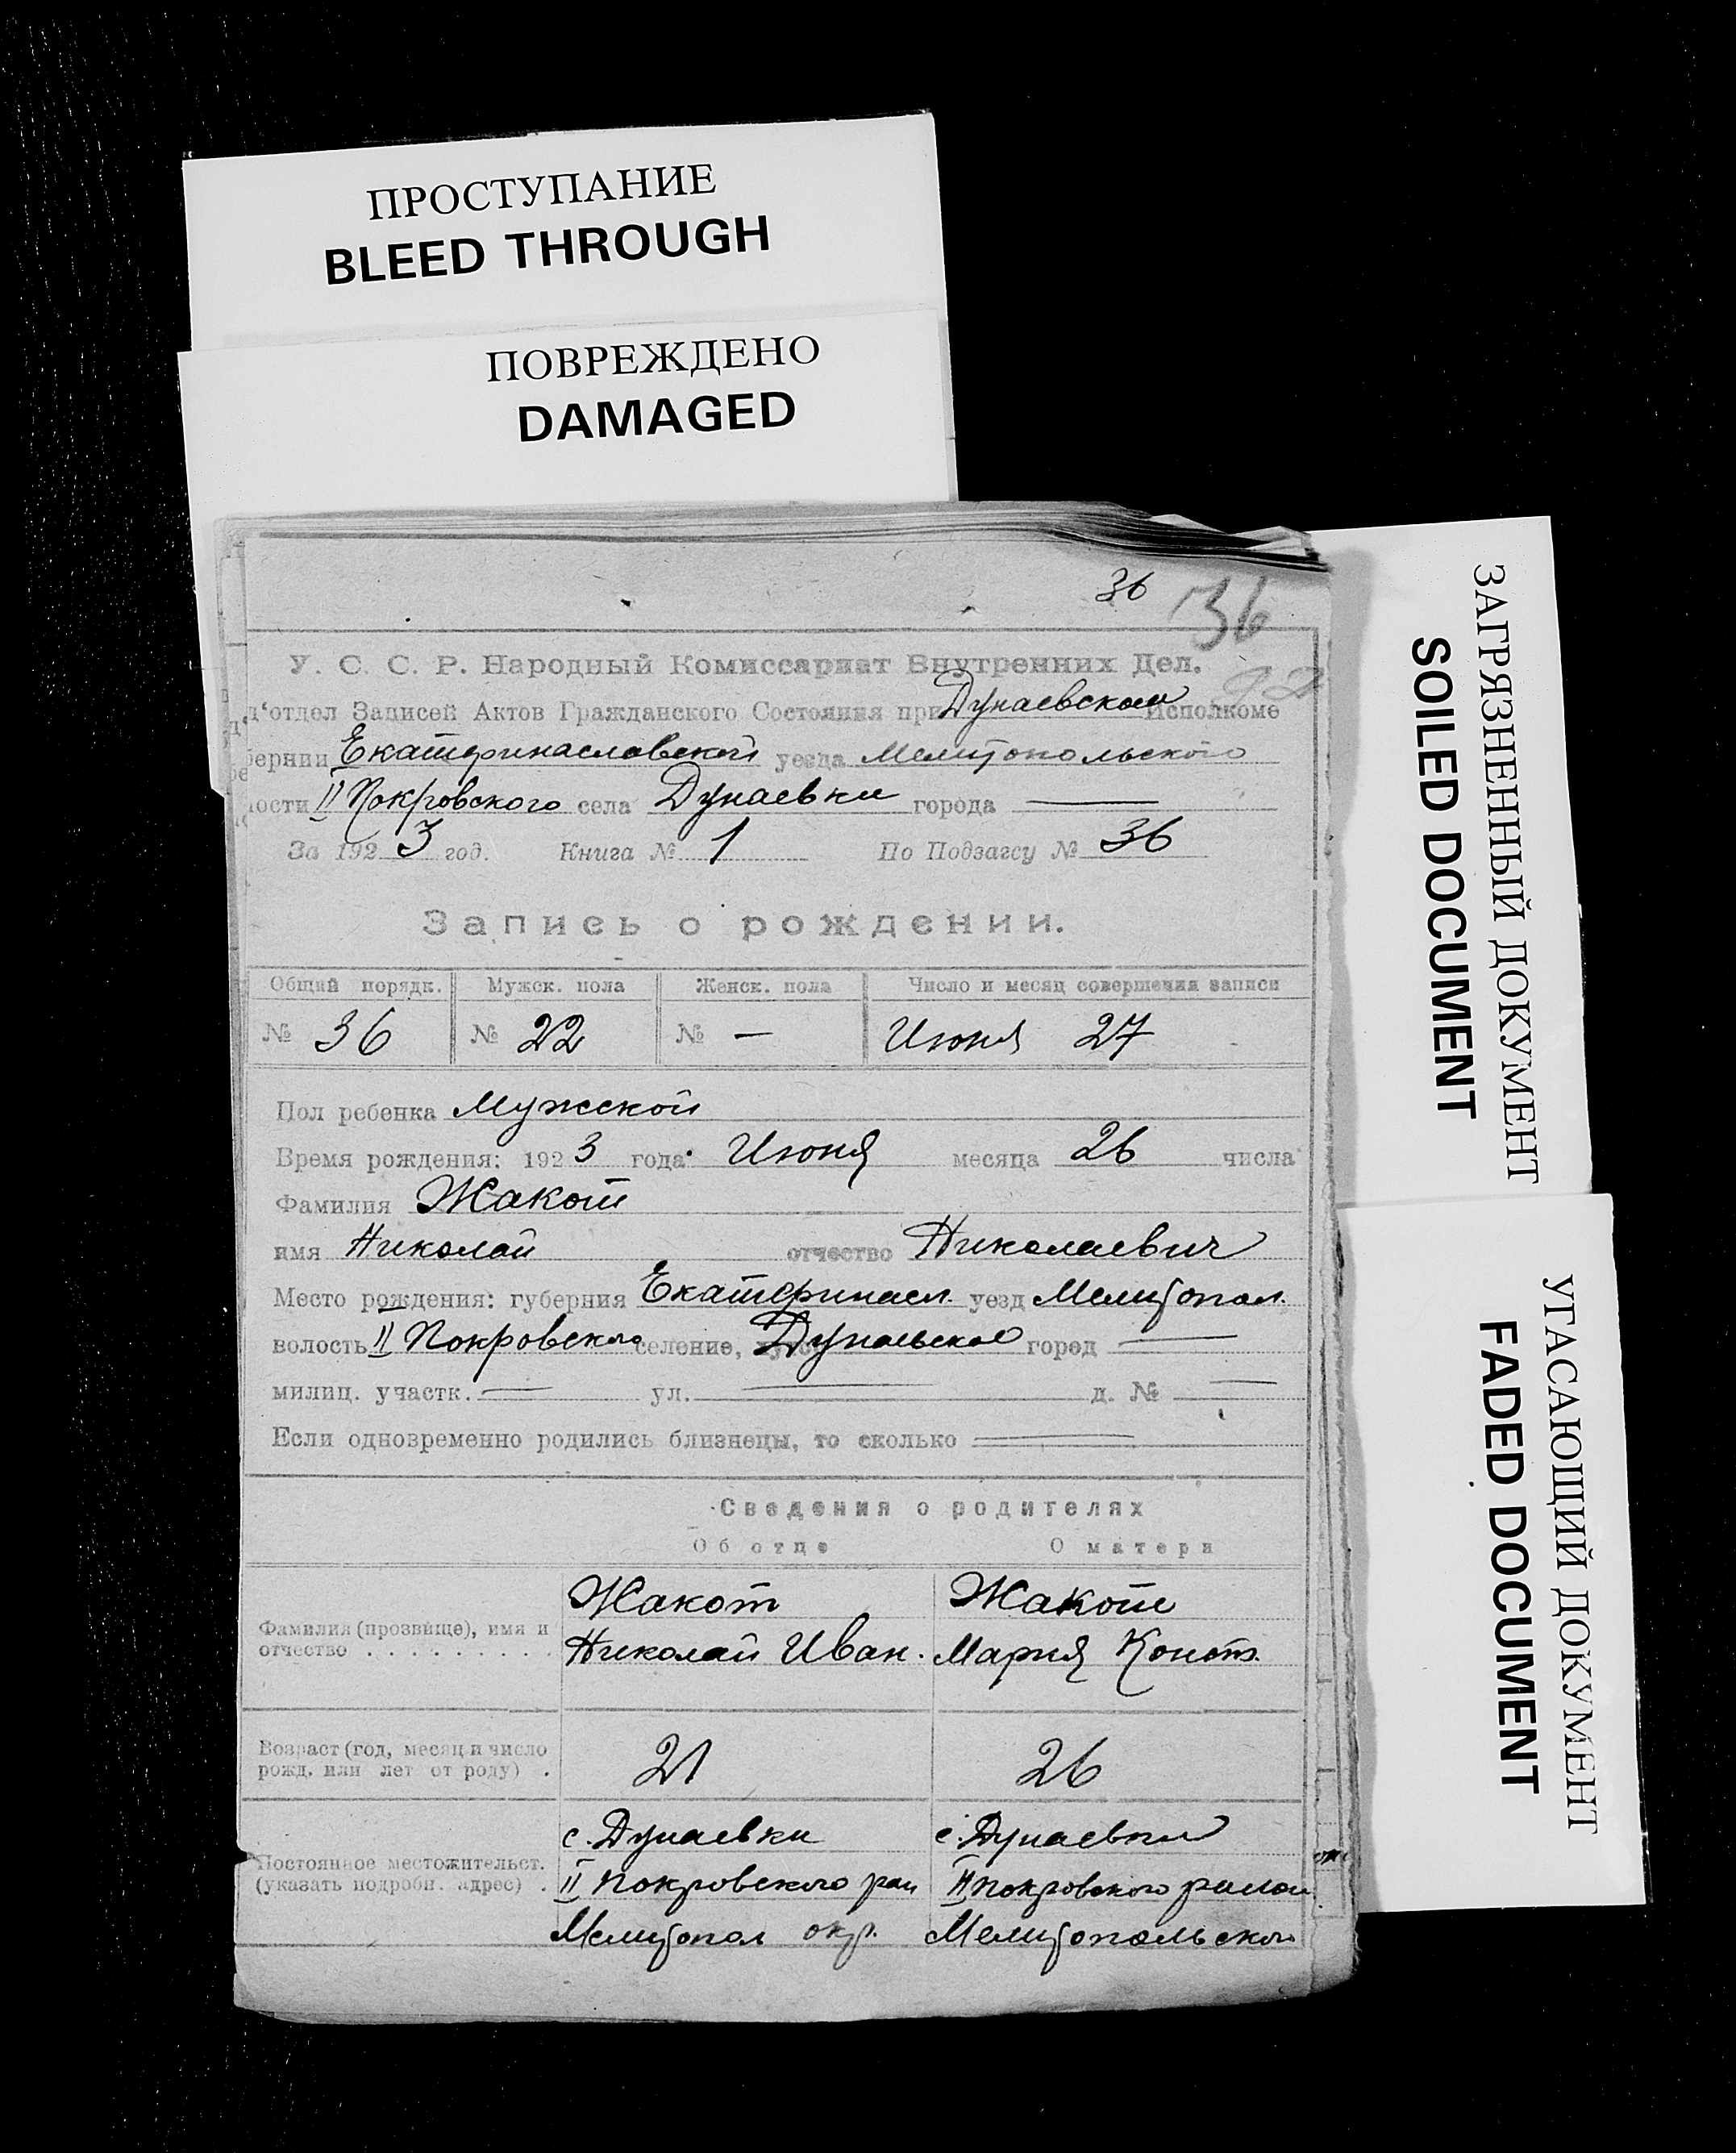 ПРОСТУПАНИЕ
BLEED THROUGH
ПОВРЕЖДЕНО
DAMAGED
ЗАГРЯЗНЕННЫЙ ДОКУМЕНТ
SOILED DOCUMENT
УГАСАЮЩИЙ ДОКУМЕНТ
FADED DOCUMENT
36 36
У. С. С. Р. Народный Комиссариат Внутренних Дел.
д'отдел Записей Актов Гражданского Состояния при Дунаевском Исполкоме
бернии Екатеринаславской уезда Мелитопольского
ости II Покровского села Дунаевки города —
За 1923 год. Книга № 1 По Подзагсу № 36
Запись о рождении.
Общий порядк. Мужск. пола Женск. пола Число и месяц совершения записи
№ 36 № 22 № — Июня 27
Пол ребенка Мужской
Время рождения: 1923 года Июня месяца 26 числа
Фамилия Жакот
имя Николай отчество Николаевич
Место рождения: губерния Екатеринасл. уезд Мелитопол.
волость II Покровско селение, Дунаевское город —
милиц. участк. — ул. — д. № —
Если одновременно родились близнецы, то сколько —
Сведения о родителях
Об отце О матери
Жакот Жакот
Фамилия (прозвище), имя и
отчество . . . . . . . . . Николай Иван. Мария Конст.
Возраст (год, месяц и число
рожд. или лет от роду) . 21 26
с. Дунаевки с. Дунаевки
Постоянное местожительст.
(указать подробн. адрес) . II Покровского рай II Покровского район
Мелитопол окр. Мелитопольского